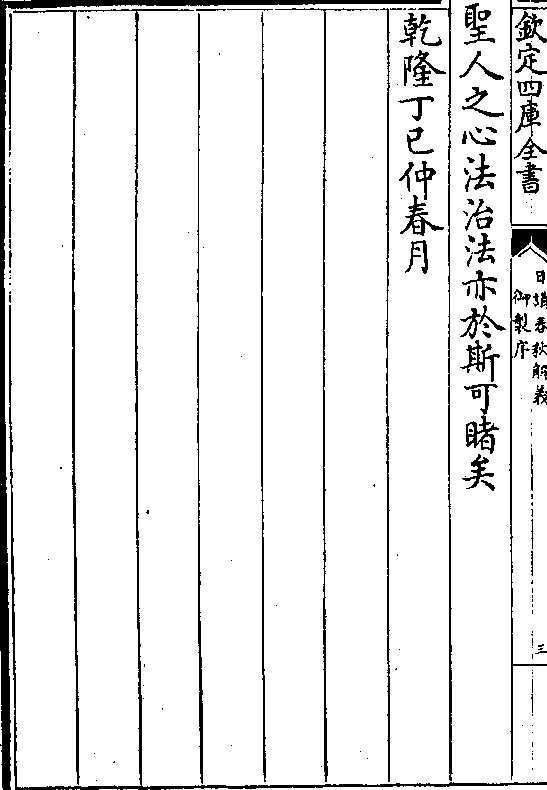 欽定四庫全書
日講春秋解義
御製序
三
聖人之心法治法亦於斯可睹矣
乾隆丁巳仲春月